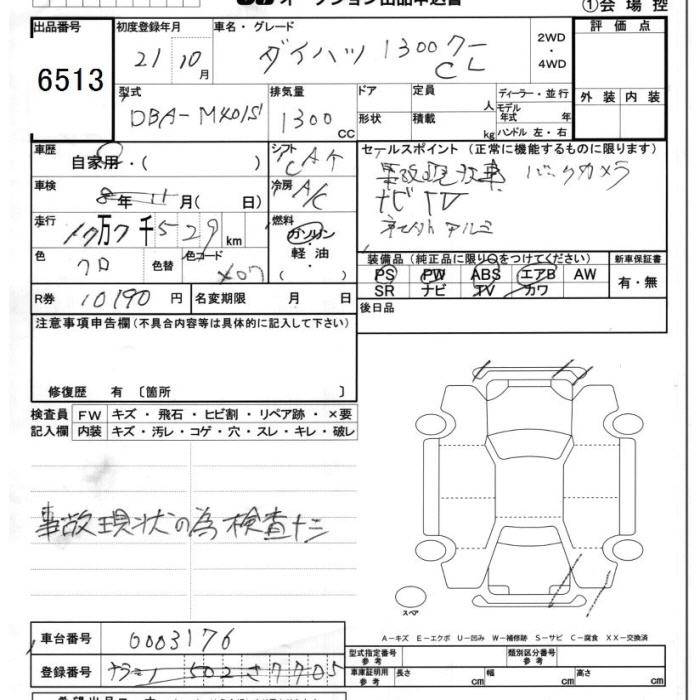 ①会場控
出品番号
6513
初度登録年月
21 10月
車名・グレード
ダイハツ 1300クー
CL
2WD
・
4WD
評価点
外装 内装
型式
DBA-M401S
排気量
1300 CC
ドア
定員 人
ディーラー・並行
モデル年式 年
形状
積載 kg
ハンドル 左・右
車歴
自家用・( )
シフト
CAT
車検
8年11月( 日)
冷房
A/C
走行
万 千 529 km
燃料
ガソリン・
軽油・
( )
色
クロ
色替
色コード
X07
R券 10190円
名変期限 月 日
セールスポイント(正常に機能するものに限ります)
事故現状車 バックカメラ
ナビ TV
アルミ
装備品(純正品に限り○をつけてください)
PS PW ABS エアB AW
SR ナビ TV カワ
新車保証書
有・無
後日品
注意事項申告欄(不具合内容等は具体的に記入して下さい)
修復歴 有〔箇所 〕
検査員記入欄
FW キズ・飛石・ヒビ割・リペア跡・×要
内装 キズ・汚レ・コゲ・穴・スレ・キレ・破レ
事故現状の為検査ナシ
スペア
A-キズ E-エクボ U-凹み W-補修跡 S-サビ C-腐食 XX-交換済
車台番号 0003176
登録番号 502 さ 7705
型式指定番号 参考
類別区分番号 参考
車庫証明用 参考 長さ cm 幅 cm 高さ cm